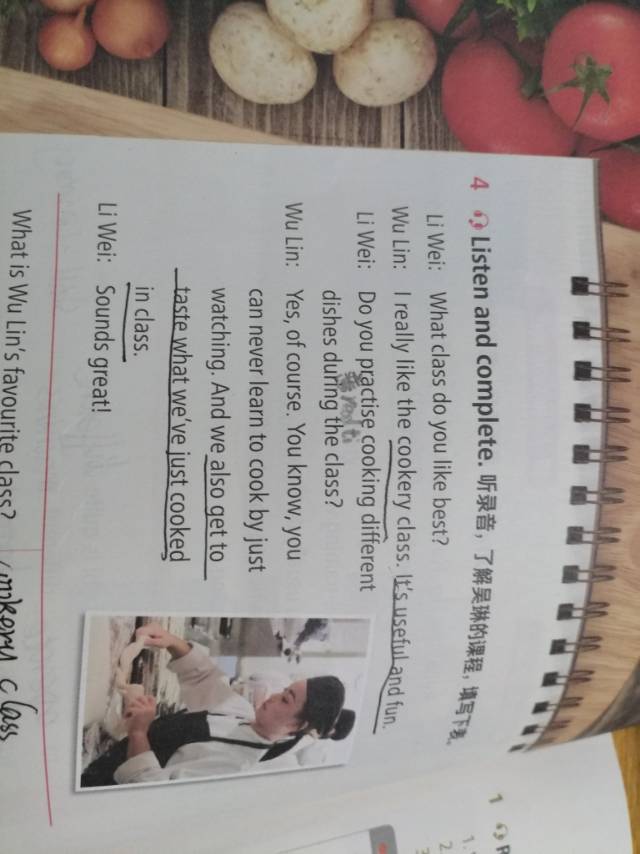 4 Listen and complete. 听录音，了解吴琳的课程，填写下表。
Li Wei: What class do you like best?
Wu Lin: I really like the cookery class. It's useful and fun.
Li Wei: Do you practise cooking different
dishes during the class?
Wu Lin: Yes, of course. You know, you
can never learn to cook by just
watching. And we also get to
taste what we've just cooked
in class.
Li Wei: Sounds great!
What is Wu Lin's favourite class?
class
1
1.
2.
3